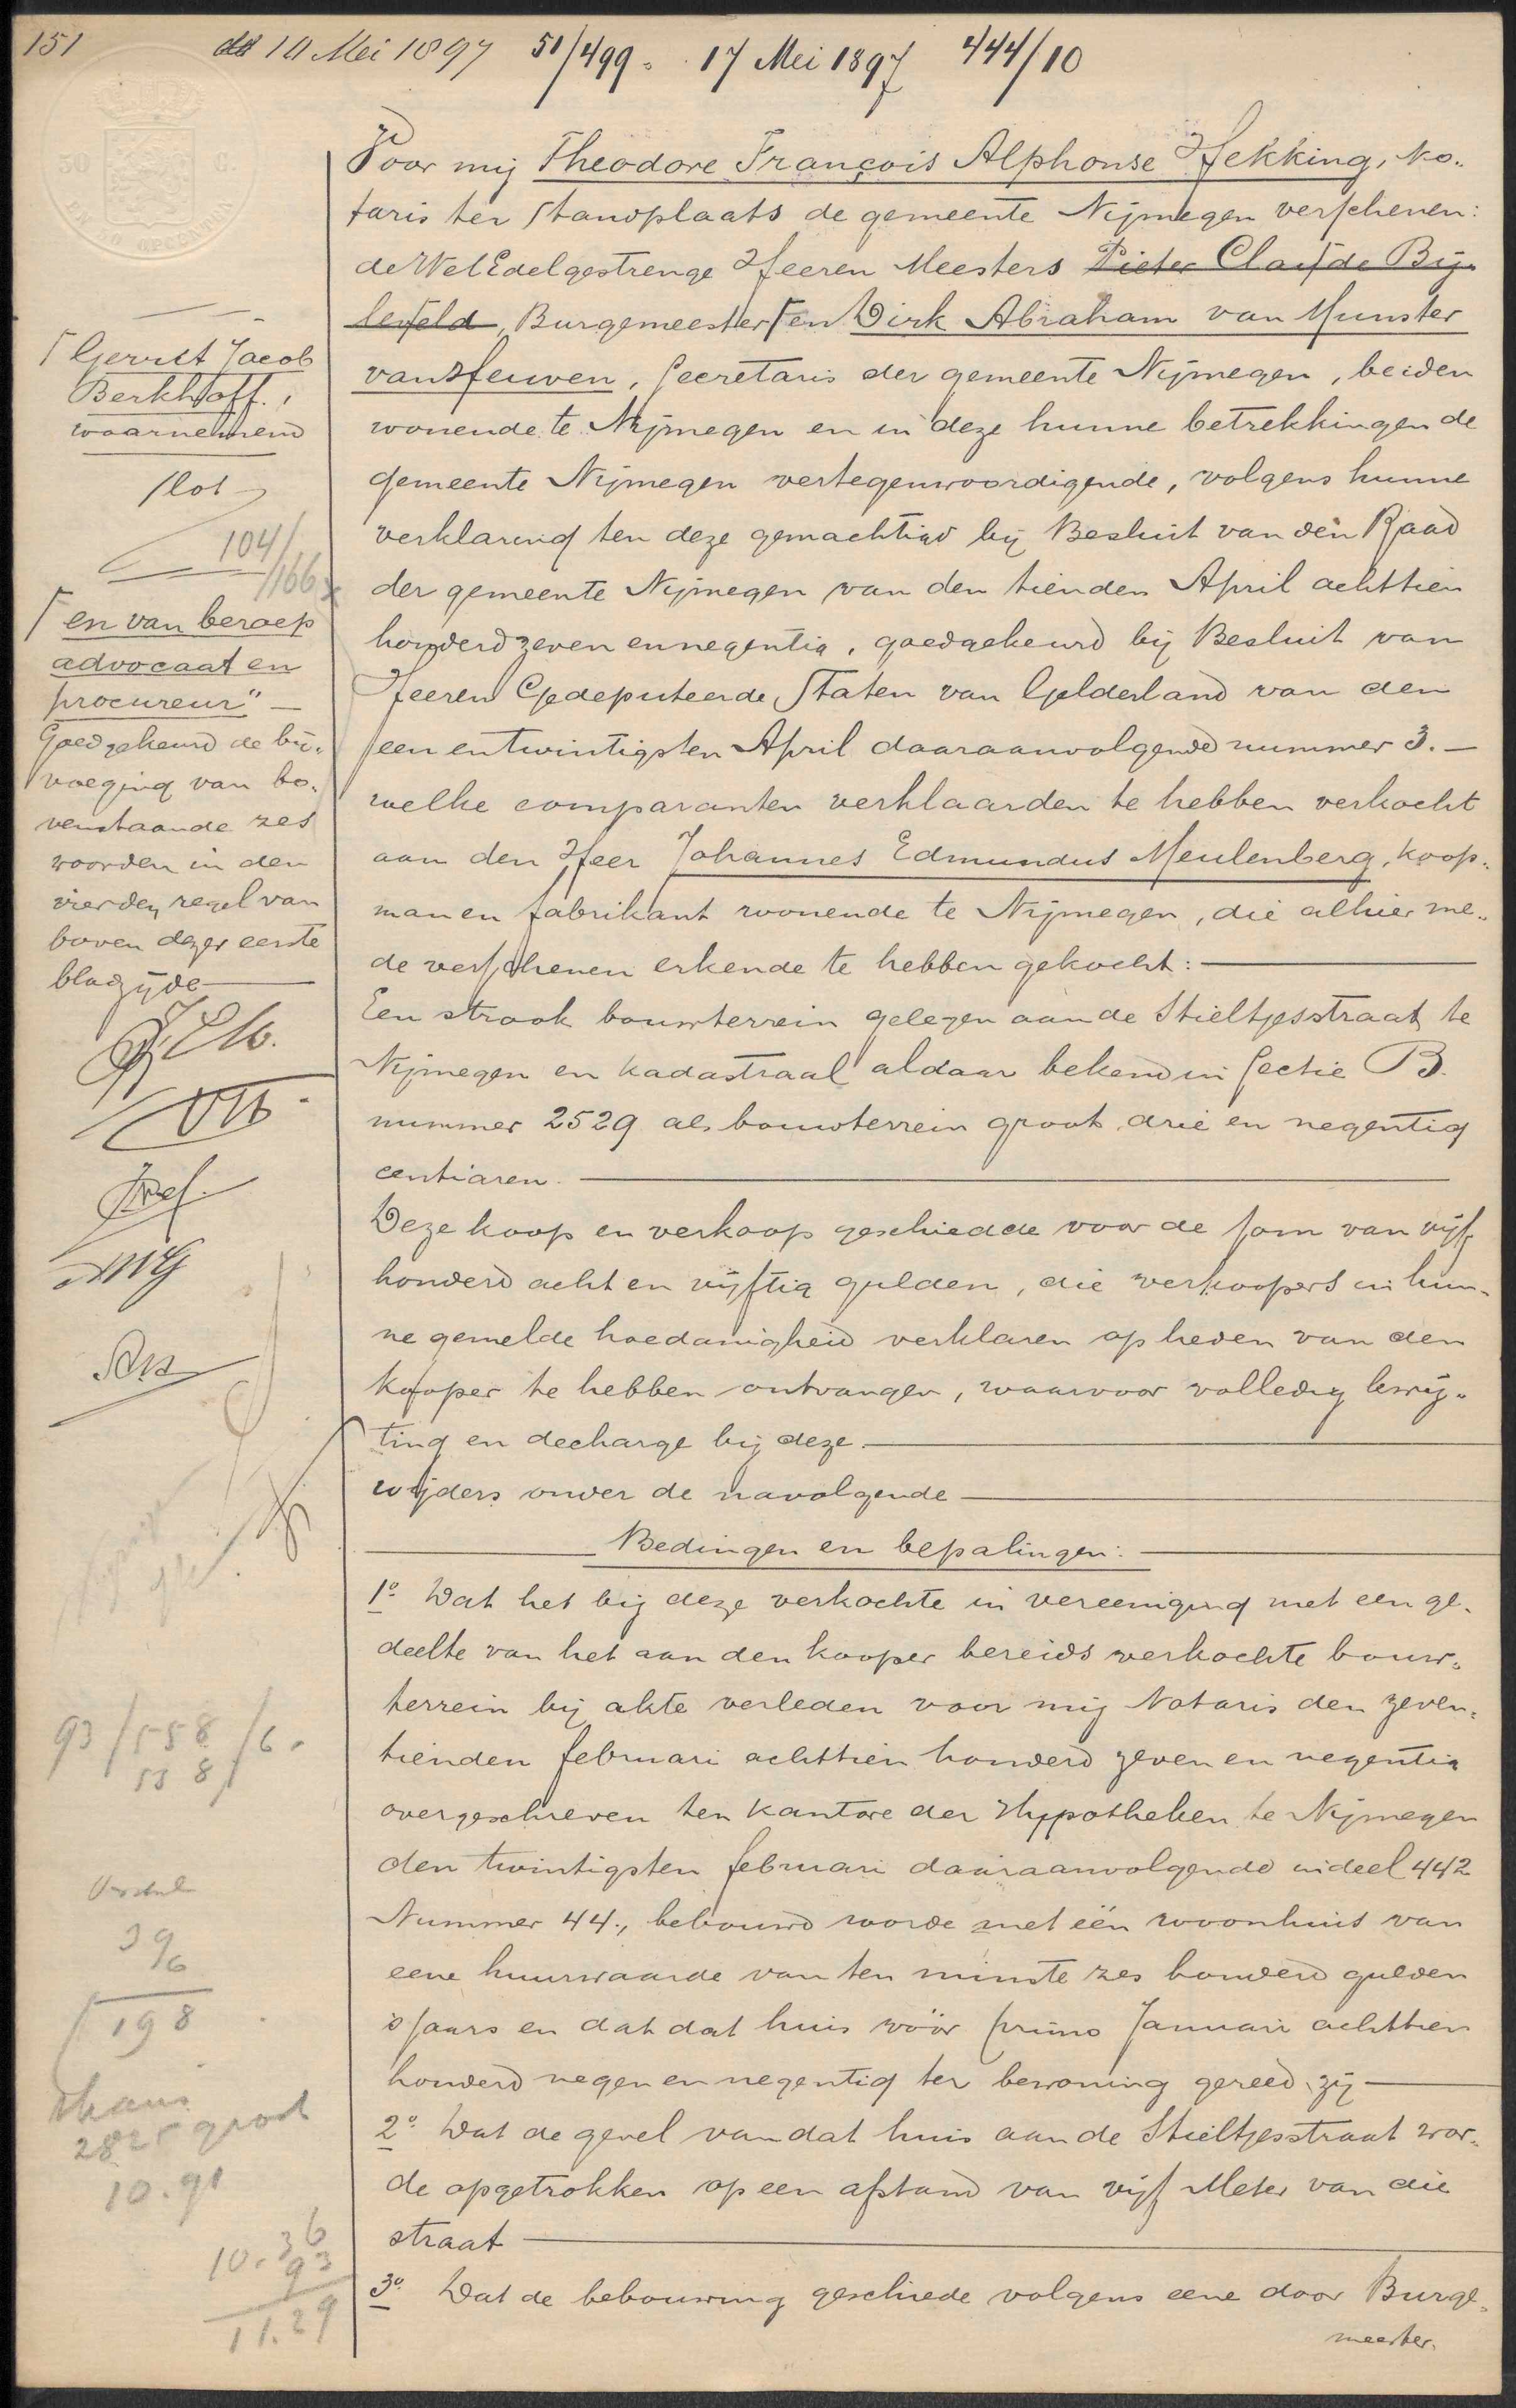 151
10 Mei 1897 51/499. 17 Mei 1897 444/10
Voor mij Theodore François Alphonse Hekking, No-
taris ter standplaats de gemeente Nijmegen verschenen:
de WelEdelgestrenge Heeren Meesters Pieter Claude Bij-
leveld, Burgemeester en Dirk Abraham van Munster
van Heuven, Secretaris der gemeente Nijmegen, beiden
wonende te Nijmegen en in deze hunne betrekkingen de
gemeente Nijmegen vertegenwoordigende, volgens hunne
verklaring ten deze gemachtigd bij Besluit van den Raad
der gemeente Nijmegen van den tienden April achttien
honderd zeven en negentig, goedgekeurd bij Besluit van
Heeren Gedeputeerde Staten van Gelderland van den
een en twintigsten April daaraanvolgende nummer 3. —
welke comparanten verklaarden te hebben verkocht
aan den Heer Johannes Edmundus Meulenberg, koop-
man en fabrikant wonende te Nijmegen, die alhier me-
de verschenen erkende te hebben gekocht:
Een strook bouwterrein gelegen aan de Stieltjesstraat te
Nijmegen en kadastraal aldaar bekend in Sectie B.
nummer 2529 als bouwterrein groot drie en negentig
centiaren.
Deze koop en verkoop geschiedde voor de som van vijf
honderd acht en vijftig gulden, die verkoopers in hun-
ne gemelde hoedanigheid verklaren op heden van den
kooper te hebben ontvangen, waarvoor volledig kwij-
ting en decharge bij deze.
wijders onder de navolgende
Bedingen en bepalingen:
1o. Dat het bij deze verkochte in vereeniging met een ge-
deelte van het aan den kooper bereids verkochte bouw-
terrein bij akte verleden voor mij Notaris den zeven-
tienden februari achttien honderd zeven en negentig
overgeschreven ten kantore der Hypotheken te Nijmegen
den twintigsten februari daaraanvolgende in deel 442
Nummer 44., bebouwd worde met één woonhuis van
eene huurwaarde van ten minste zes honderd gulden
's jaars en dat dat huis vóór primo Januari achttien
honderd negen en negentig ter bewoning gereed zij
2o. Dat de gevel van dat huis aan de Stieltjesstraat wor-
de opgetrokken op een afstand van vijf Meter van die
straat
3o. Dat de bebouwing geschiede volgens eene door Burge-
meester.
Gerrit Jacob
Berkhoff.,
waarnemend
slot
104/
1166
en van beroep
advocaat en
procureur" —
Goedgekeurd de bij-
voeging van bo-
venstaande zes
woorden in den
vierden regel van
boven dezer eerste
bladzijde
93/558/6.
558
396
198
thans
2825 groot
10.91
10.36
93
11.29